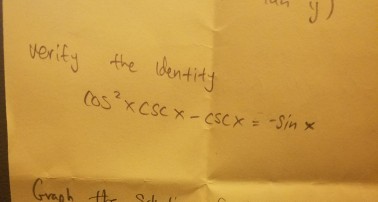 y)
verify the identity
cos²x cscx - cscx = -sin x
Graph the